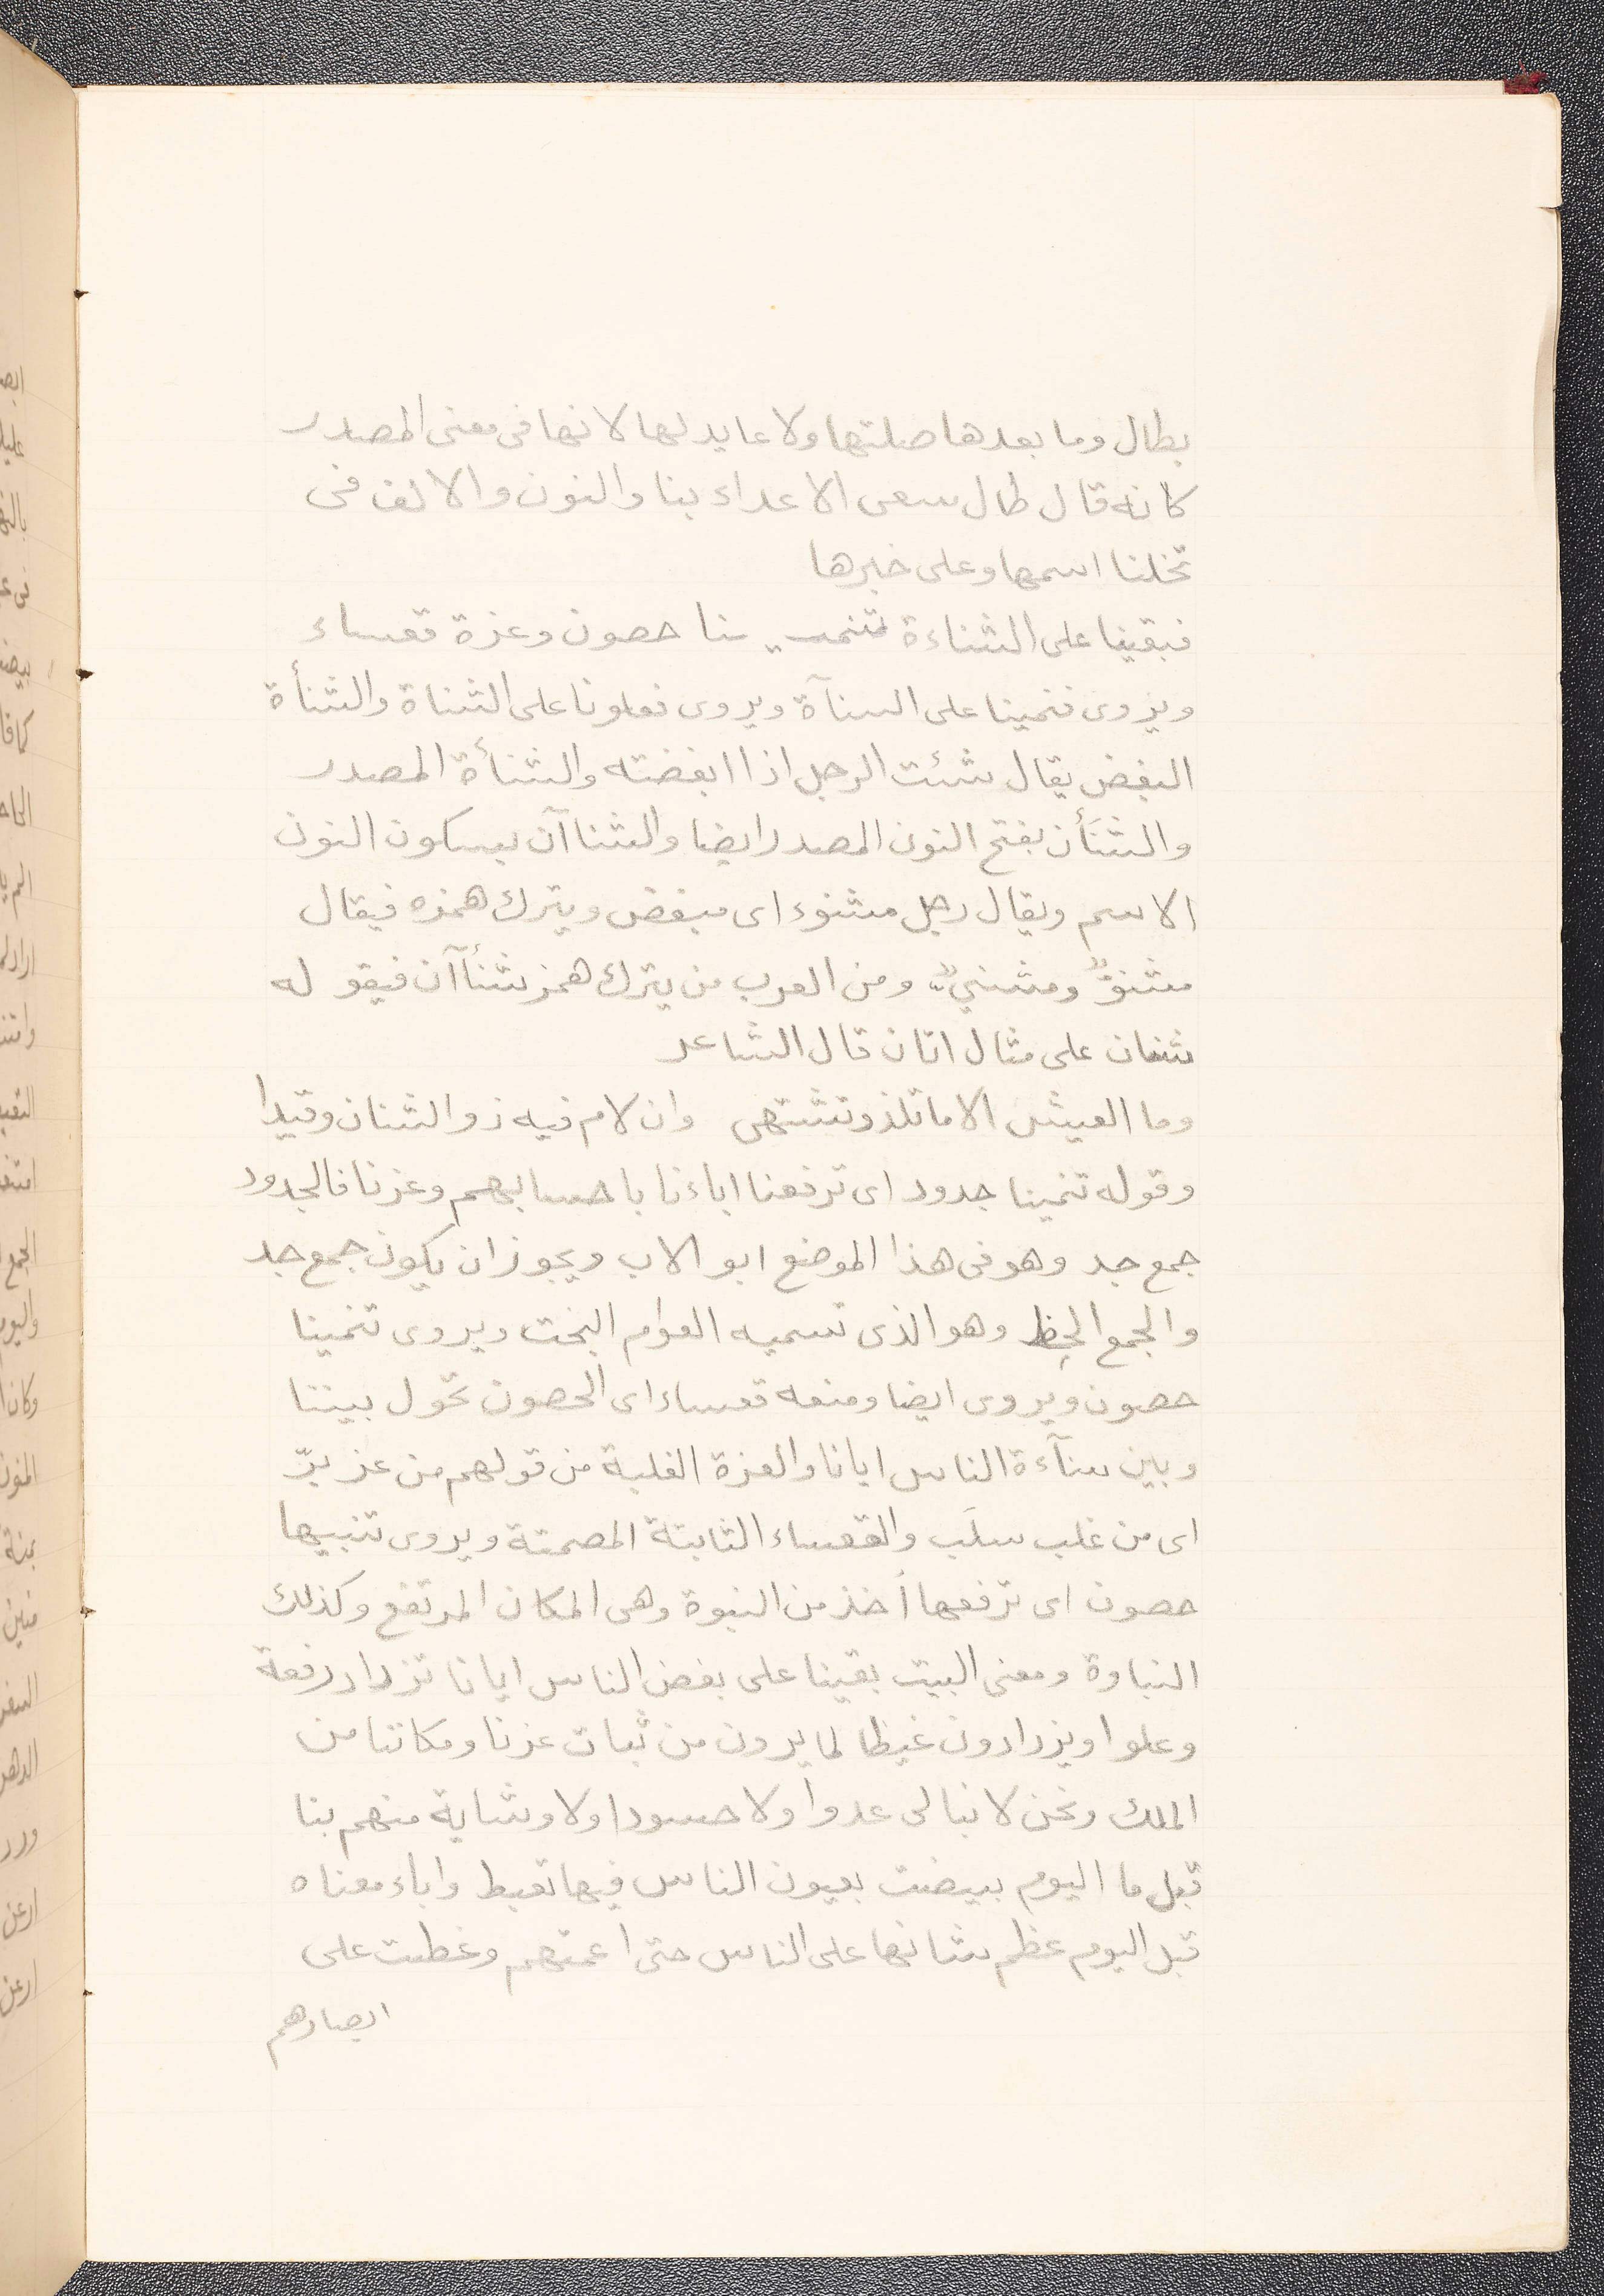 بطال وما بعدها صلتها ولا عايد لها لانها فى معنى المصدر
كانه قال طال سعى الاعداء بنا والنون والالف فى
تخلنا اسمها وعلى خبرها
فبقينا على الشناءة تنميـ ـنا حصون وعزة قعساء
ويروى فنمينا على السنآة ويروى فعلونا على الشناة والشنأة
البغض يقال شئت الرجل اذا ابغضته والشنأة المصدر
والشنَأن بفتح النون المصدر ايضا والشناآن بسكون النون
الاسم ويقال رجل مشنوء اى مبغض ويترك همزه فيقال
مشنوٌّ ومشنيٌّ ومن العرب من يترك همز شنأآن فيقو له
شنان على مثال اتان قال الشاعر
وما العيش الا ما تلذ وتشتهى وان لام فيه ذو الشنان وقيدا
وقوله تنمينا جدود اى ترفعنا اباءنا باحسابهم وعزنا فالجدود
جمع جد وهو فى هذا الموضع ابو الاب ويجوز ان يكون جمع جد
والجمع الحظ وهو الذى تسميه العوام البخت ويروى تنمينا
حصون ويروى ايضا ومنعه قعساء اى الحصون تحول بيننا
وبين سنآءة الناس ايانا والعزة الغلبة من قولهم من عز بزّ
اى من غلب سلَب والقعساء الثابتة المصمتة ويروى تنبيها
حصون اى ترفعها أخذ من النبوة وهى المكان المرتفع وكذلك
النباوة ومعنى البيت بقينا على بغض الناس ايانا تزداد رفعة
وعلوا ويزدادون غيظا لما يرون من ثبات عزنا ومكاننا من
الملك ونحن لا نبالى عدوا ولا حسودا ولا وشاية منهم بنا
قبل ما اليوم بييضت بعيون الناس فيها تعيط واباء معناه
قبل اليوم عظم شانها على الناس حتى اعمتهم وغطت على
ابصارهم